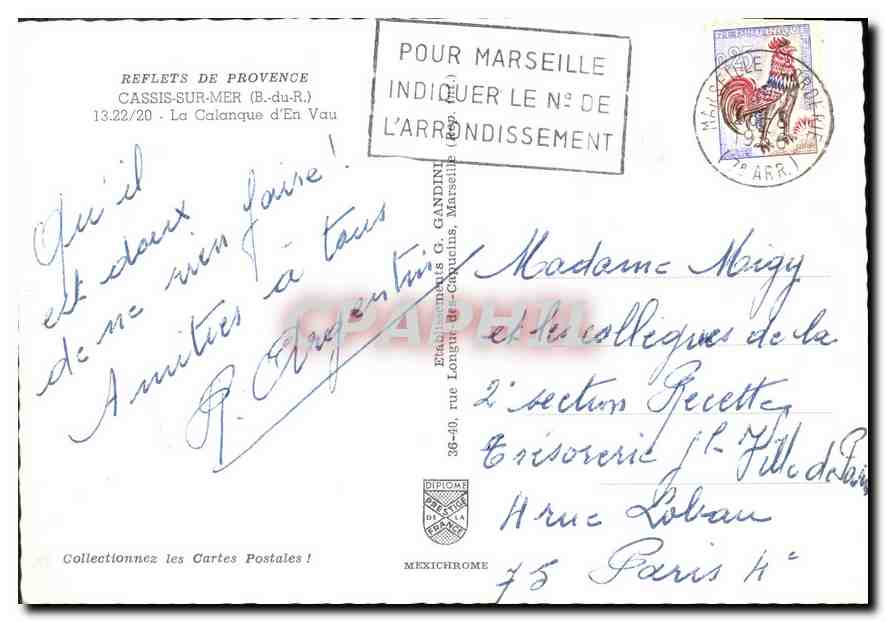 REFLETS DE PROVENCE
CASSIS-SUR-MER (B.-du-R.)
13.22/20 - La Calanque d'En Vau
POUR MARSEILLE
INDIQUER LE Nº DE
L'ARRONDISSEMENT
Qu'il
est doux
de ne rien faire !
Amitiés à tous
R. Argentin
Etablissements G. GANDINI
36-40, rue Longue-des-Capucins, Marseille (Rep. Int.)
CPAPHIL
Madame Migy
et les collègues de la
2e section Recette
Trésorerie Ple Ville de Paris
4 rue Lobau
75 Paris 4e
DIPLOME
PRESTIGE
DE LA
FRANCE
MEXICHROME
Collectionnez les Cartes Postales !